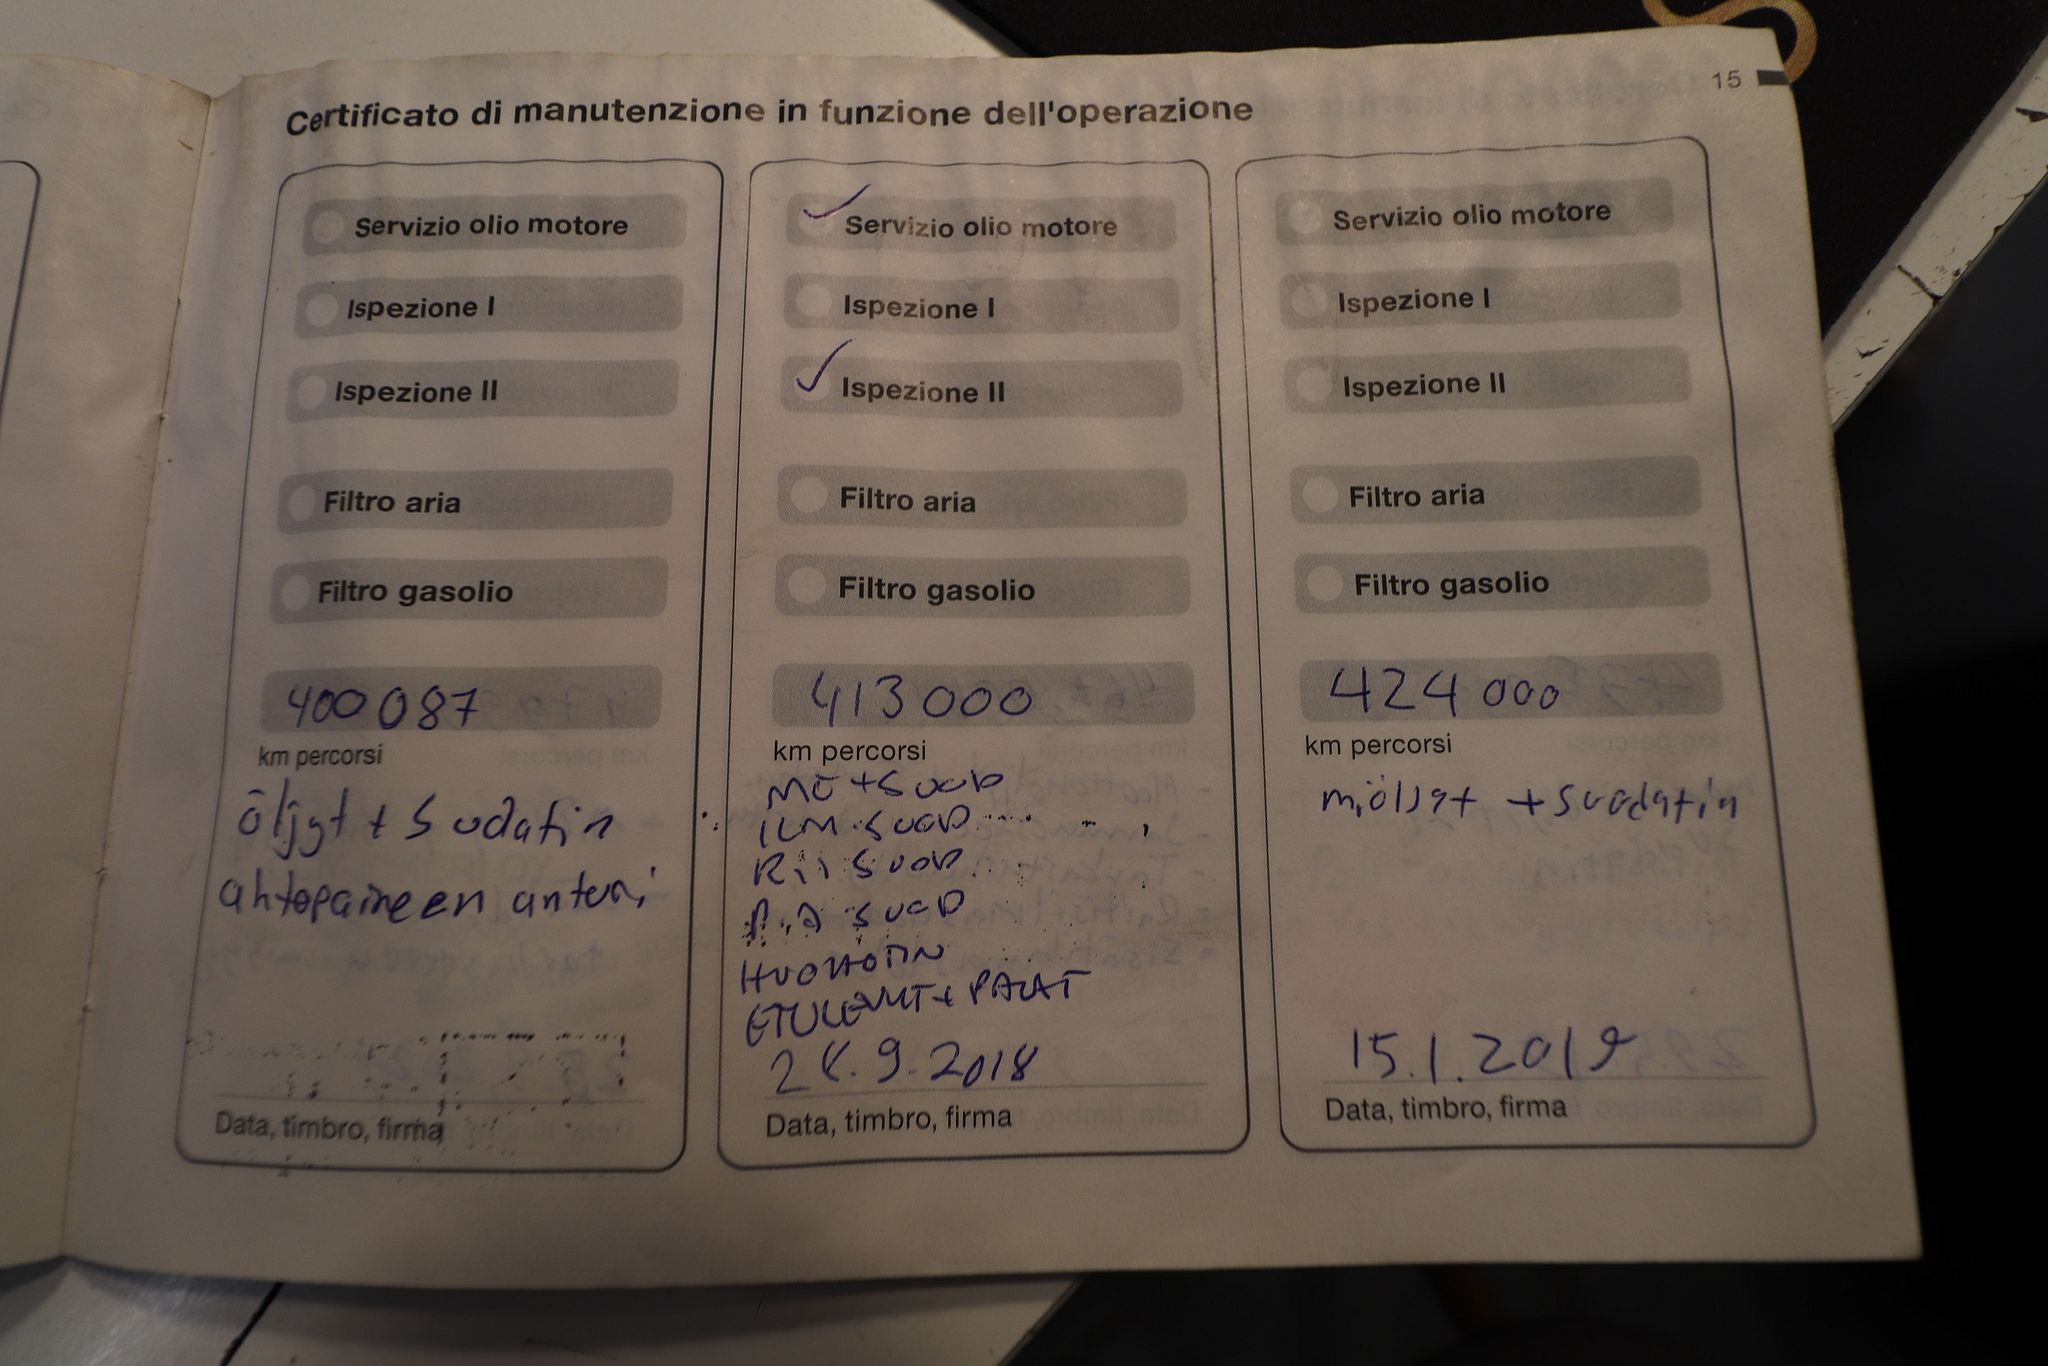 15
Certificato di manutenzione in funzione dell'operazione
Servizio olio motore
Ispezione I
Ispezione II
Filtro aria
Filtro gasolio
400 087
km percorsi
öljyt + suodatin
ahtopaineen anturi
Data, timbro, firma
Servizio olio motore
Ispezione I
Ispezione II
Filtro aria
Filtro gasolio
413 000
km percorsi
MÖ + SUOD
ILM. SUOD
SUOD
SUOD
HUOHOTIN
+ PALAT
9.2018
Data, timbro, firma
Servizio olio motore
Ispezione I
Ispezione II
Filtro aria
Filtro gasolio
424 000
km percorsi
+ suodatin
15.1.2019
Data, timbro, firma